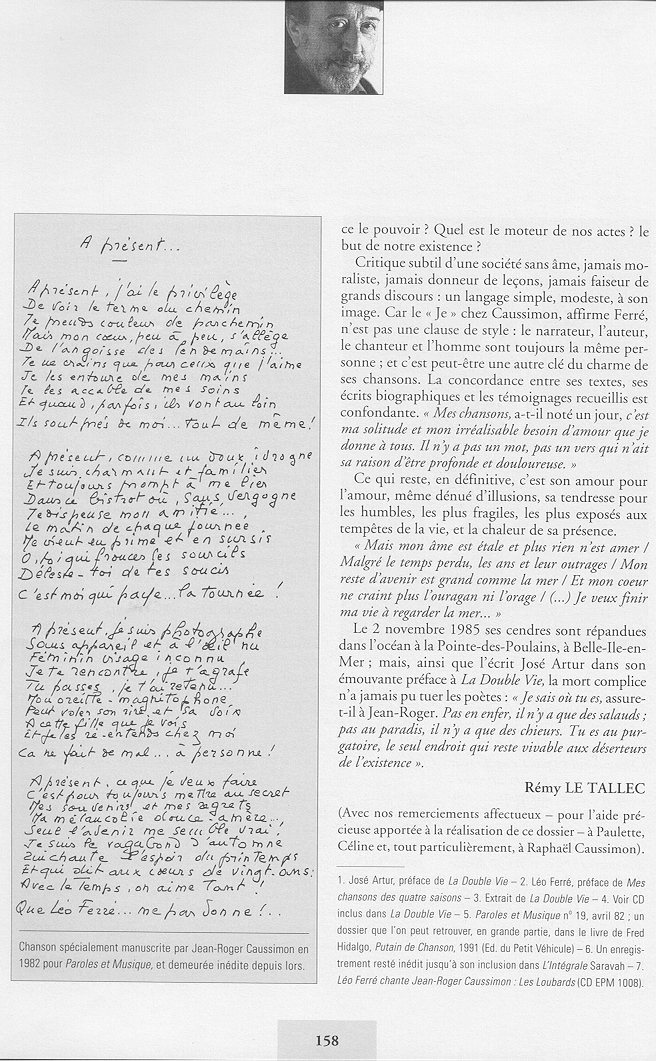 A présent...
A présent, j'ai le privilège
De voir le terme du chemin
Je prends couleur de parchemin
Mais mon cœur, peu à peu, s'allège
De l'angoisse des lendemains...
Je ne crains que pour ceux que j'aime
Je les entoure de mes mains
Je les accable de mes soins
Et quand, parfois, ils vont au loin
Ils sont près de moi... tout de même !
A présent, comme un doux ivrogne
Je suis charmant et familier
Et toujours prompt à me lier
Dans ce bistrot où, sans vergogne
Je dispense mon amitié...,
Le matin de chaque journée
Me vient en prime et en sursis
O, toi qui fronces les sourcils
Déleste-toi de tes soucis
C'est moi qui paye... la tournée !
A présent, je suis photographe
Sans appareil et à l'œil nu
Féminin visage inconnu
Je te rencontre, je t'agrafe
Tu passes, je t'ai retenu...
Mon oreille-magnétophone
Peut voler son rire et sa voix
A cette fille que je vois
Et je les ré-entends chez moi
Ça ne fait de mal... à personne !
A présent, ce que je veux faire
C'est pour toujours mettre au secret
Mes souvenirs et mes regrets
Ma mélancolie douce-amère...,
Seul l'avenir me semble vrai,
Je suis le vagabond d'automne
Qui chante l'espoir du printemps
Et qui dit aux cœurs de vingt-ans:
Avec le Temps, on aime Tant !
Que Léo Ferré... me pardonne !..
Chanson spécialement manuscrite par Jean-Roger Caussimon en
1982 pour Paroles et Musique, et demeurée inédite depuis lors.
ce le pouvoir ? Quel est le moteur de nos actes ? le
but de notre existence ?
Critique subtil d'une société sans âme, jamais mo-
raliste, jamais donneur de leçons, jamais faiseur de
grands discours : un langage simple, modeste, à son
image. Car le « Je » chez Caussimon, affirme Ferré,
n'est pas une clause de style : le narrateur, l'auteur,
le chanteur et l'homme sont toujours la même per-
sonne ; et c'est peut-être une autre clé du charme de
ses chansons. La concordance entre ses textes, ses
écrits biographiques et les témoignages recueillis est
confondante. « Mes chansons, a-t-il noté un jour, c'est
ma solitude et mon irréalisable besoin d'amour que je
donne à tous. Il n'y a pas un mot, pas un vers qui n'ait
sa raison d'être profonde et douloureuse. »
Ce qui reste, en définitive, c'est son amour pour
l'amour, même dénué d'illusions, sa tendresse pour
les humbles, les plus fragiles, les plus exposés aux
tempêtes de la vie, et la chaleur de sa présence.
« Mais mon âme est étale et plus rien n'est amer /
Malgré le temps perdu, les ans et leur outrages / Mon
reste d'avenir est grand comme la mer / Et mon coeur
ne craint plus l'ouragan ni l'orage / (...) Je veux finir
ma vie à regarder la mer... »
Le 2 novembre 1985 ses cendres sont répandues
dans l'océan à la Pointe-des-Poulains, à Belle-Ile-en-
Mer ; mais, ainsi que l'écrit José Artur dans son
émouvante préface à La Double Vie, la mort complice
n'a jamais pu tuer les poètes : « Je sais où tu es, assure-
t-il à Jean-Roger. Pas en enfer, il n'y a que des salauds ;
pas au paradis, il n'y a que des chieurs. Tu es au pur-
gatoire, le seul endroit qui reste vivable aux déserteurs
de l'existence ».
Rémy LE TALLEC
(Avec nos remerciements affectueux – pour l'aide pré-
cieuse apportée à la réalisation de ce dossier – à Paulette,
Céline et, tout particulièrement, à Raphaël Caussimon).
1. José Artur, préface de La Double Vie – 2. Léo Ferré, préface de Mes
chansons des quatre saisons – 3. Extrait de La Double Vie – 4. Voir CD
inclus dans La Double Vie – 5. Paroles et Musique n° 19, avril 82 ; un
dossier que l'on peut retrouver, en grande partie, dans le livre de Fred
Hidalgo, Putain de Chanson, 1991 (Ed. du Petit Véhicule) – 6. Un enregis-
trement resté inédit jusqu'à son inclusion dans L'Intégrale Saravah – 7.
Léo Ferré chante Jean-Roger Caussimon : Les Loubards (CD EPM 1008).
158